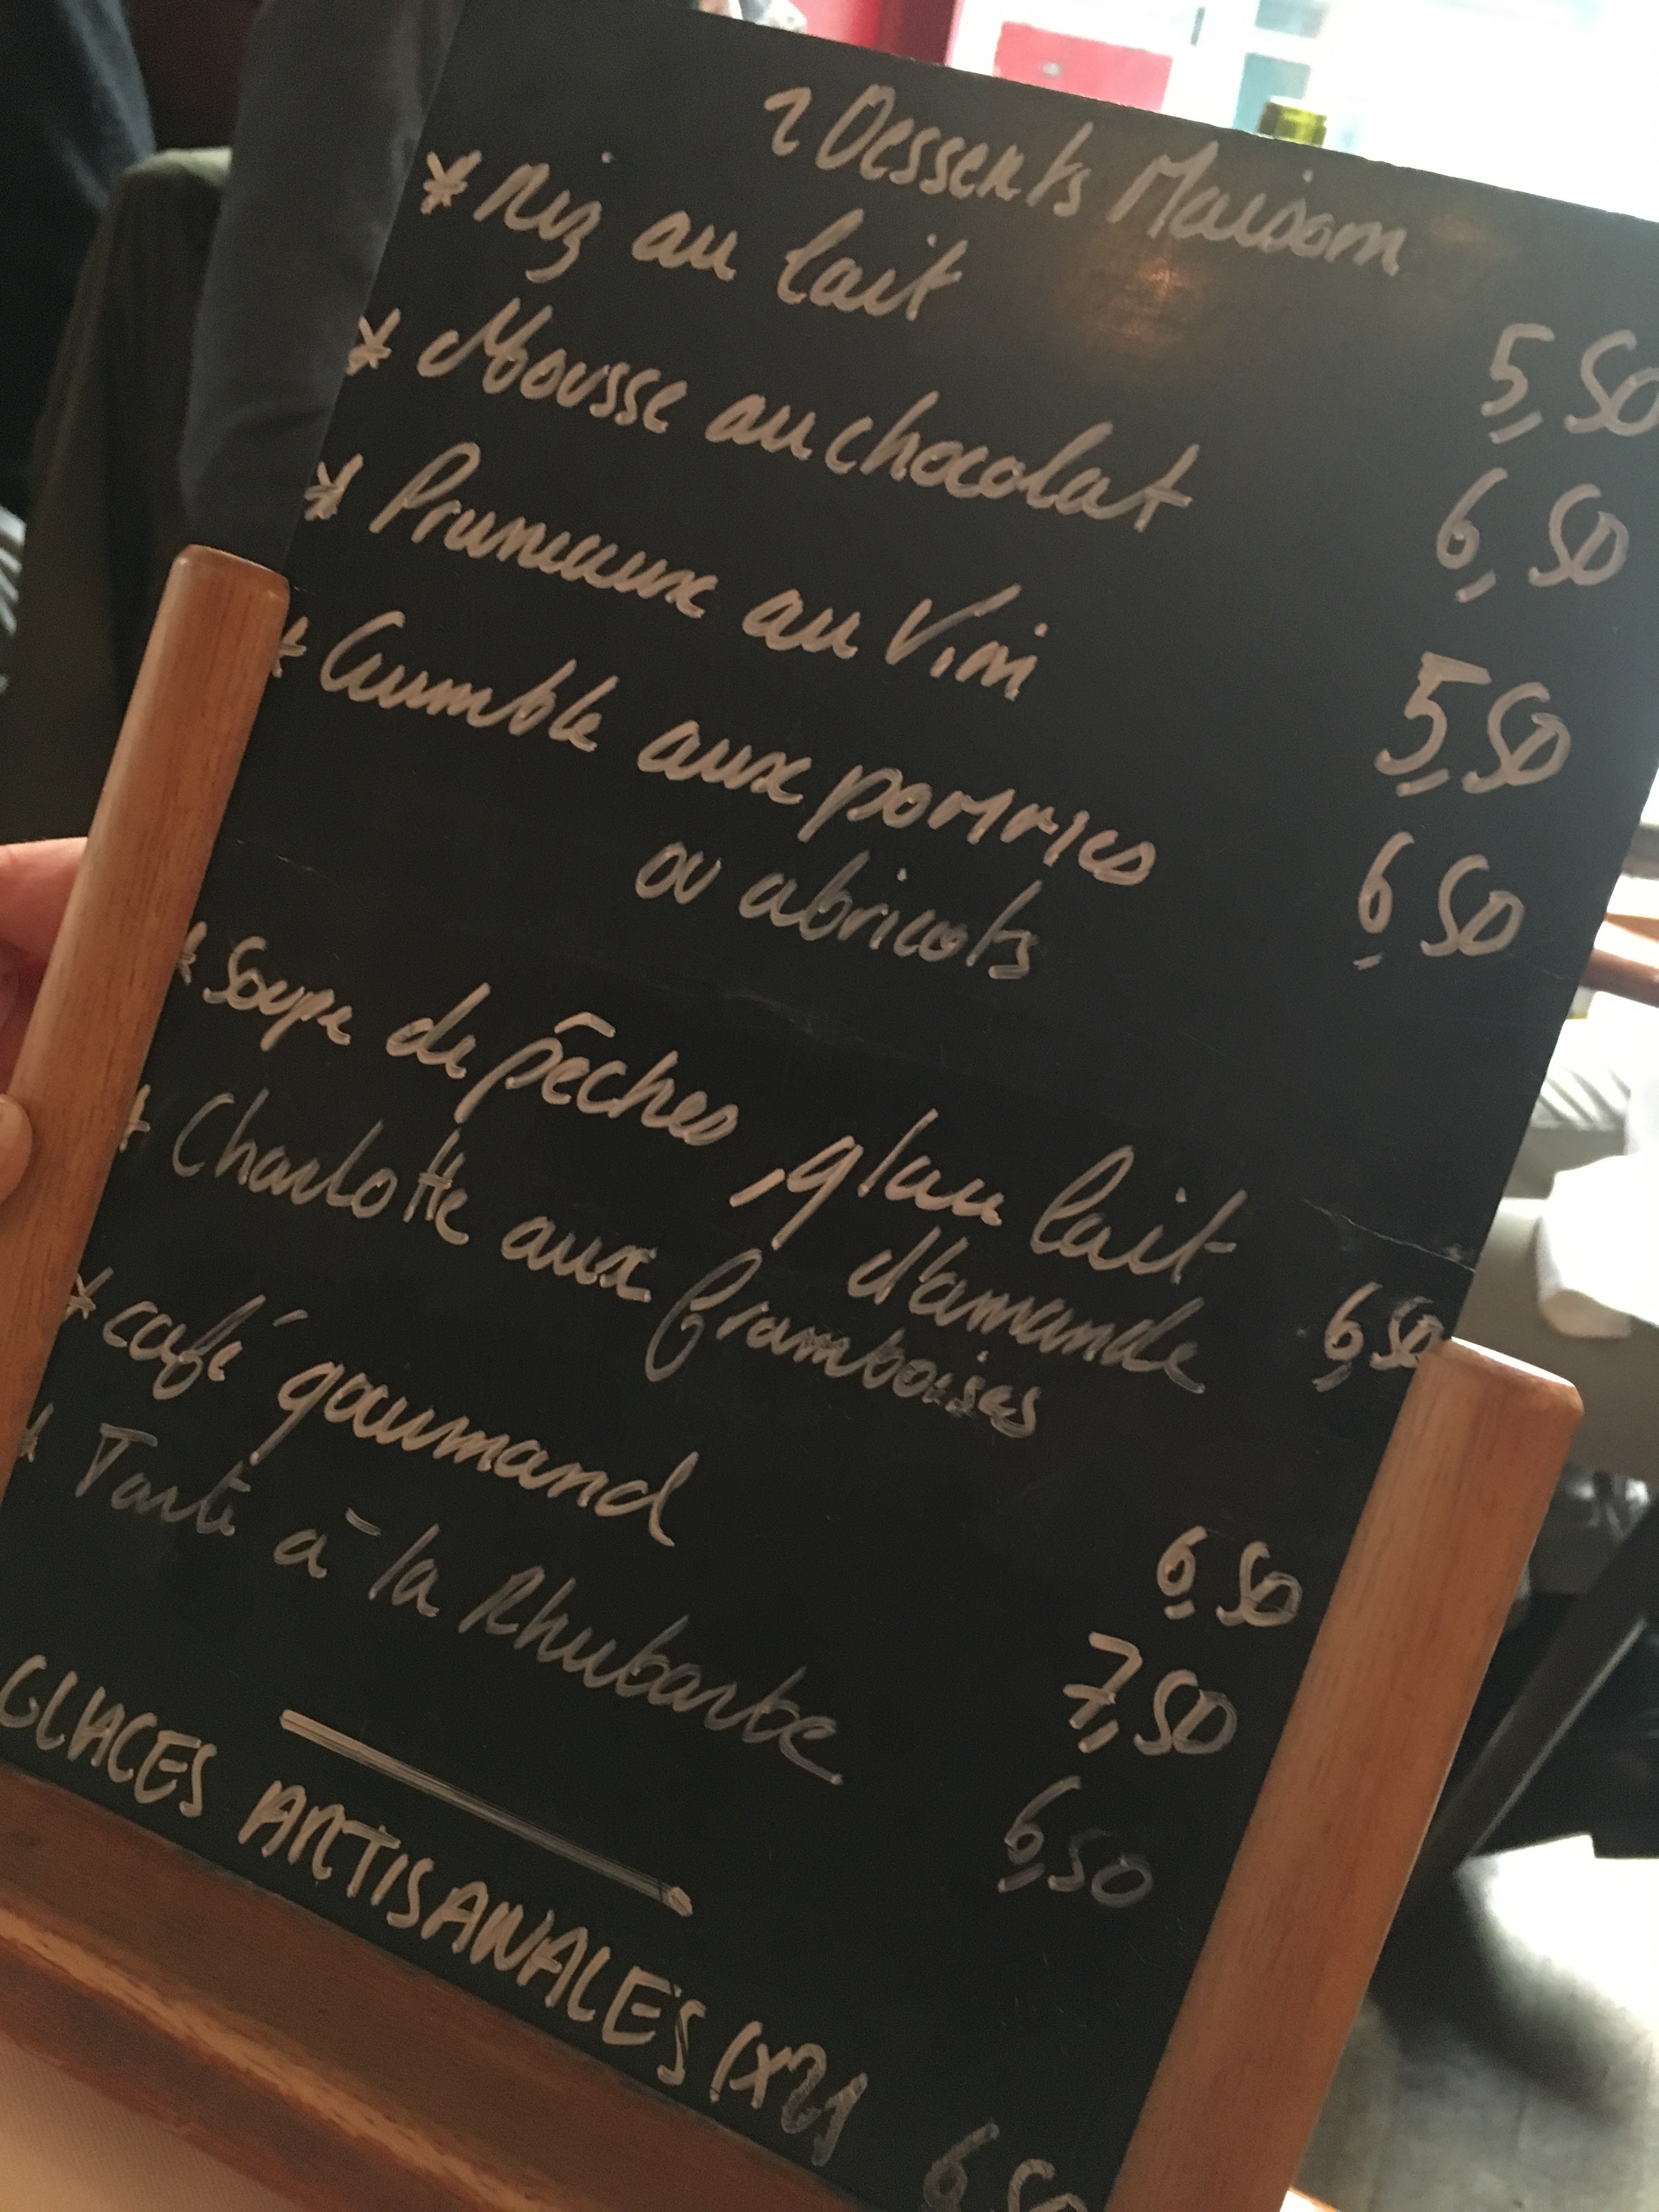 ~ Desserts Maison
* Riz au lait 5,50
* Mousse au chocolat 6,50
* Pruneaux au Vin 5,50
* Crumble aux pommes 6,50
ou abricots
* Soupe de pêches, gl au lait
d'amande 6,50
* Charlotte aux framboises 6,50
* café gourmand 7,50
* Tarte à la Rhubarbe 6,50
GLACES ARTISANALES (x2) 6,50